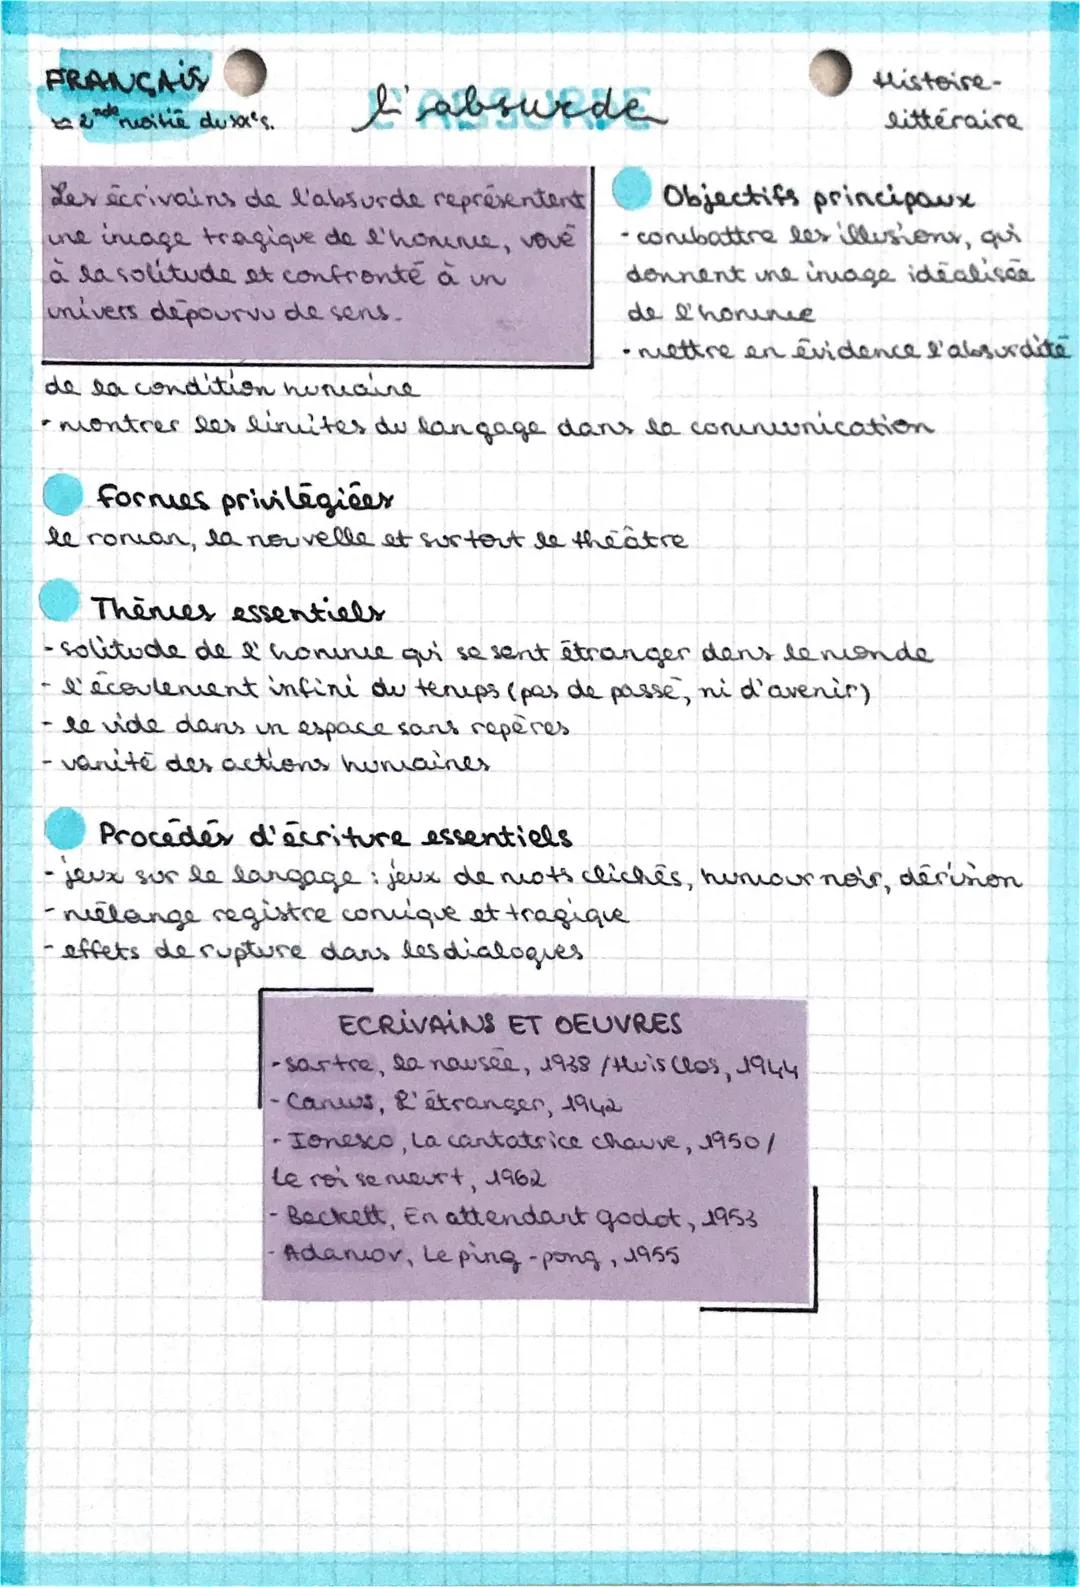 FRANÇAIS
≈ 2nde moitié du XX's.
l'absurde
L'ABSURDE
Histoire-
littéraire
Les écrivains de l'absurde représentent
une image tragique de l'homme, voué
à la solitude et confronté à un
univers dépourvu de sens.
Objectifs principaux
- combattre les illusions, qui
donnent une image idéalisée
de l'homme
- mettre en évidence l'absurdité
de la condition humaine
- montrer les limites du langage dans la communication
Formes privilégiées
le roman, la nouvelle et surtout le théâtre
Thèmes essentiels
- solitude de l'homme qui se sent étranger dans le monde
- l'écoulement infini du temps (pas de passé, ni d'avenir)
- le vide dans un espace sans repères
- vanité des actions humaines
Procédés d'écriture essentiels
- jeux sur le langage : jeux de mots clichés, humour noir, dérision
- mélange registre comique et tragique
- effets de rupture dans les dialogues
ECRIVAINS ET OEUVRES
- Sartre, la nausée, 1938 / Huis Clos, 1944
- Camus, L'étranger, 1942
- Ionesco, La cantatrice chauve, 1950 /
Le roi se meurt, 1962
- Beckett, En attendant godot, 1953
- Adamov, Le ping-pong, 1955